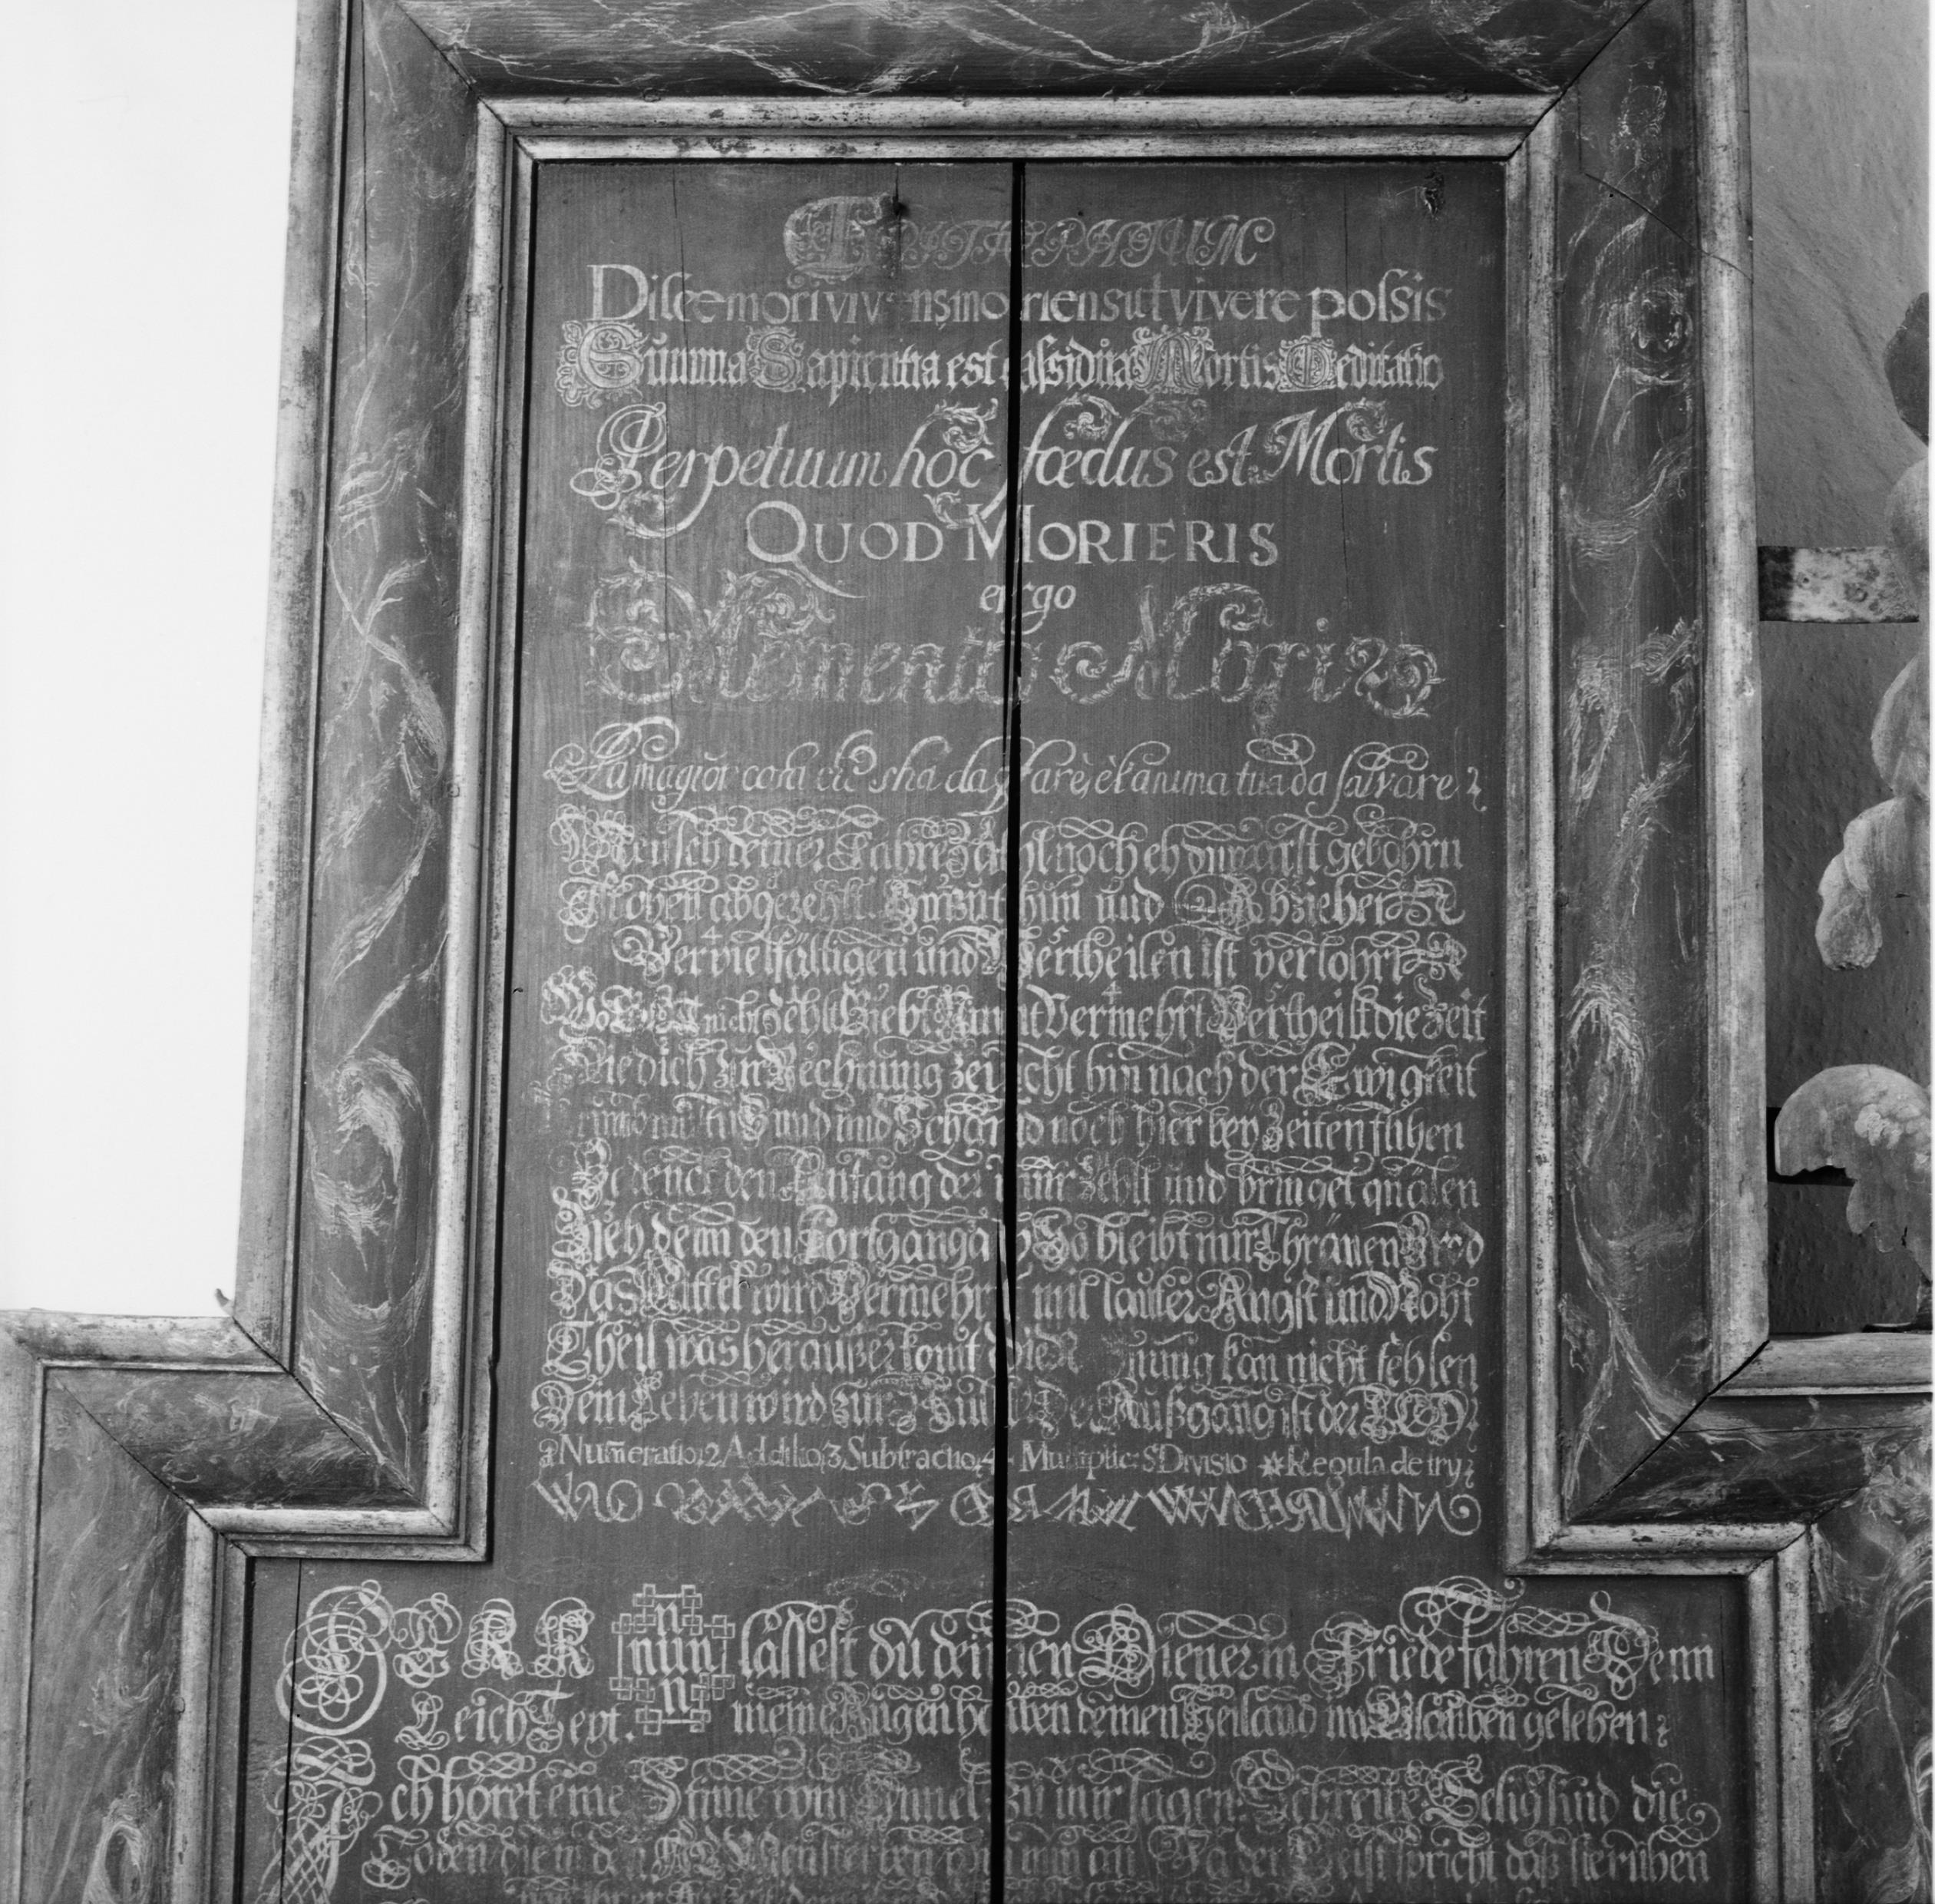 EPITAPHIUM
Disce mori vivens moriens ut vivere possis
Summa Sapientia est assidua Mortis Meditatio
Perpetuum hoc fœdus est Mortis
QUOD MORIERIS
ergo
Memento Mori
La magior cosa che s'ha da fare, è l'anima tua da salvare
Mensch deiner Jahre Zahl noch eh du warst gebohrn
Ist oben abgezehlt. Hinzuthun und Abziehen
Vervielfältigen und Vertheilen ist verlohrn
Wo GOTT nicht Zehlt Giebt Nimt Vermehrt Vertheilt die Zeit
Die dich zur Rechnung zeucht hin nach der Ewigkeit
und und noch hier bey Zeiten flihen
Gedenck den Anfang der nur Zehlt und bringet quälen
Zieh denn den Fortgang ab So bleibt nur Thränen Brod
Das Mittel wird Vermehrt mit lauter Angst und Noht
Theil was herauß er komt die nung kan nicht fehlen
Dem Leben wird zur Der Außgang ist der TOD
1 Numeratio, 2 Additio, 3 Subtractio, 4 Multiplic: 5 Divisio * Regula de try
HERR nun lässest du deinen Diener in Friede fahren Denn
Leich Text. meine Augen haben deinen Heiland im Glauben gesehen
Ich höret eine Stime vom Himel zu mir sagen: Schreibe: Selig sind die
Todten die in dem HERREN sterben von nun an Ja der Geist spricht daß sie ruhen